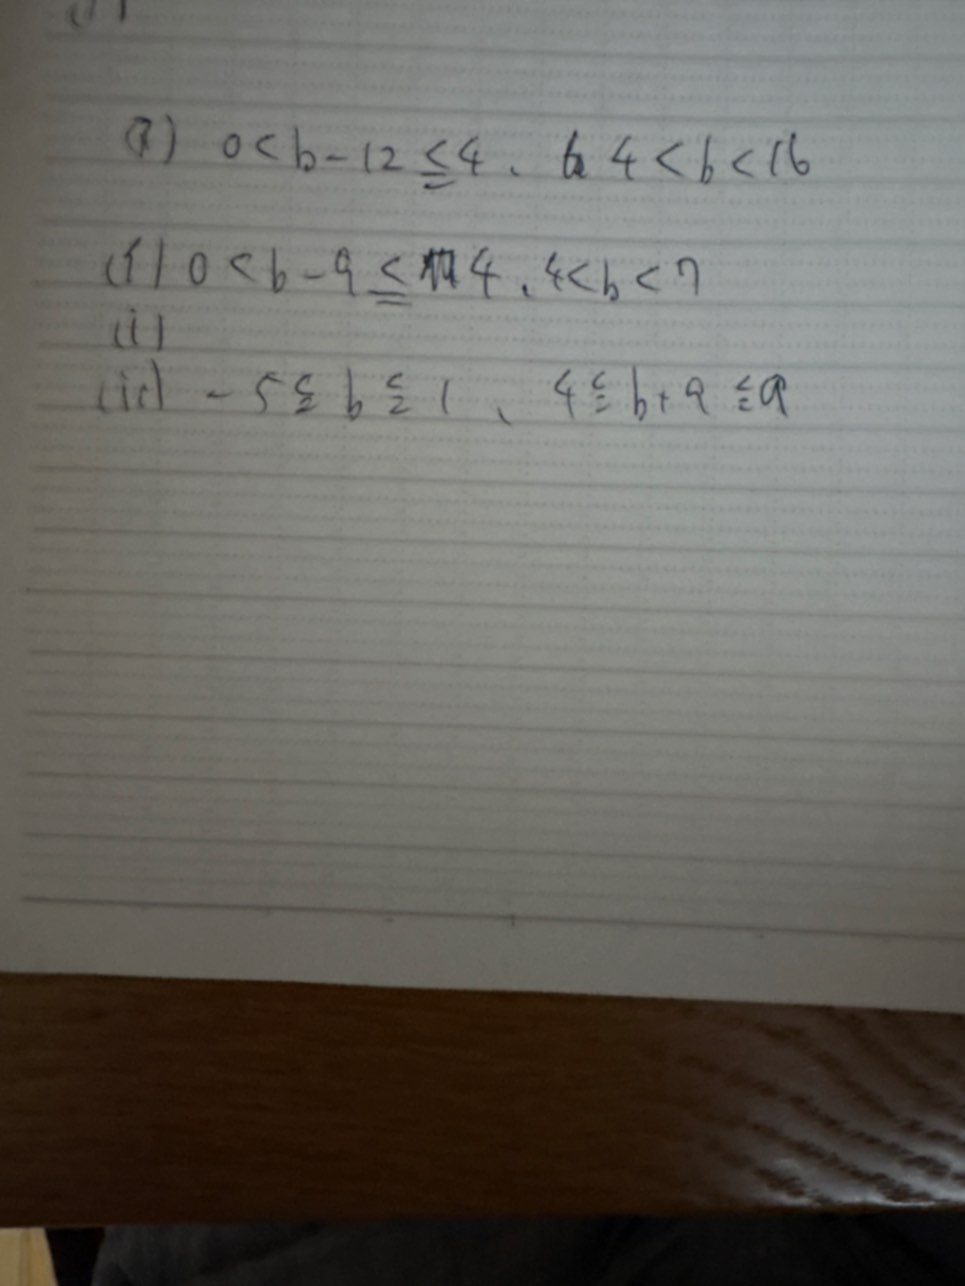 0<b-12≦4、4<b<16
(i) 0<b-9≦4、4<b<7
(i)
(ii) -5≦b≦1、4≦b+9≦9